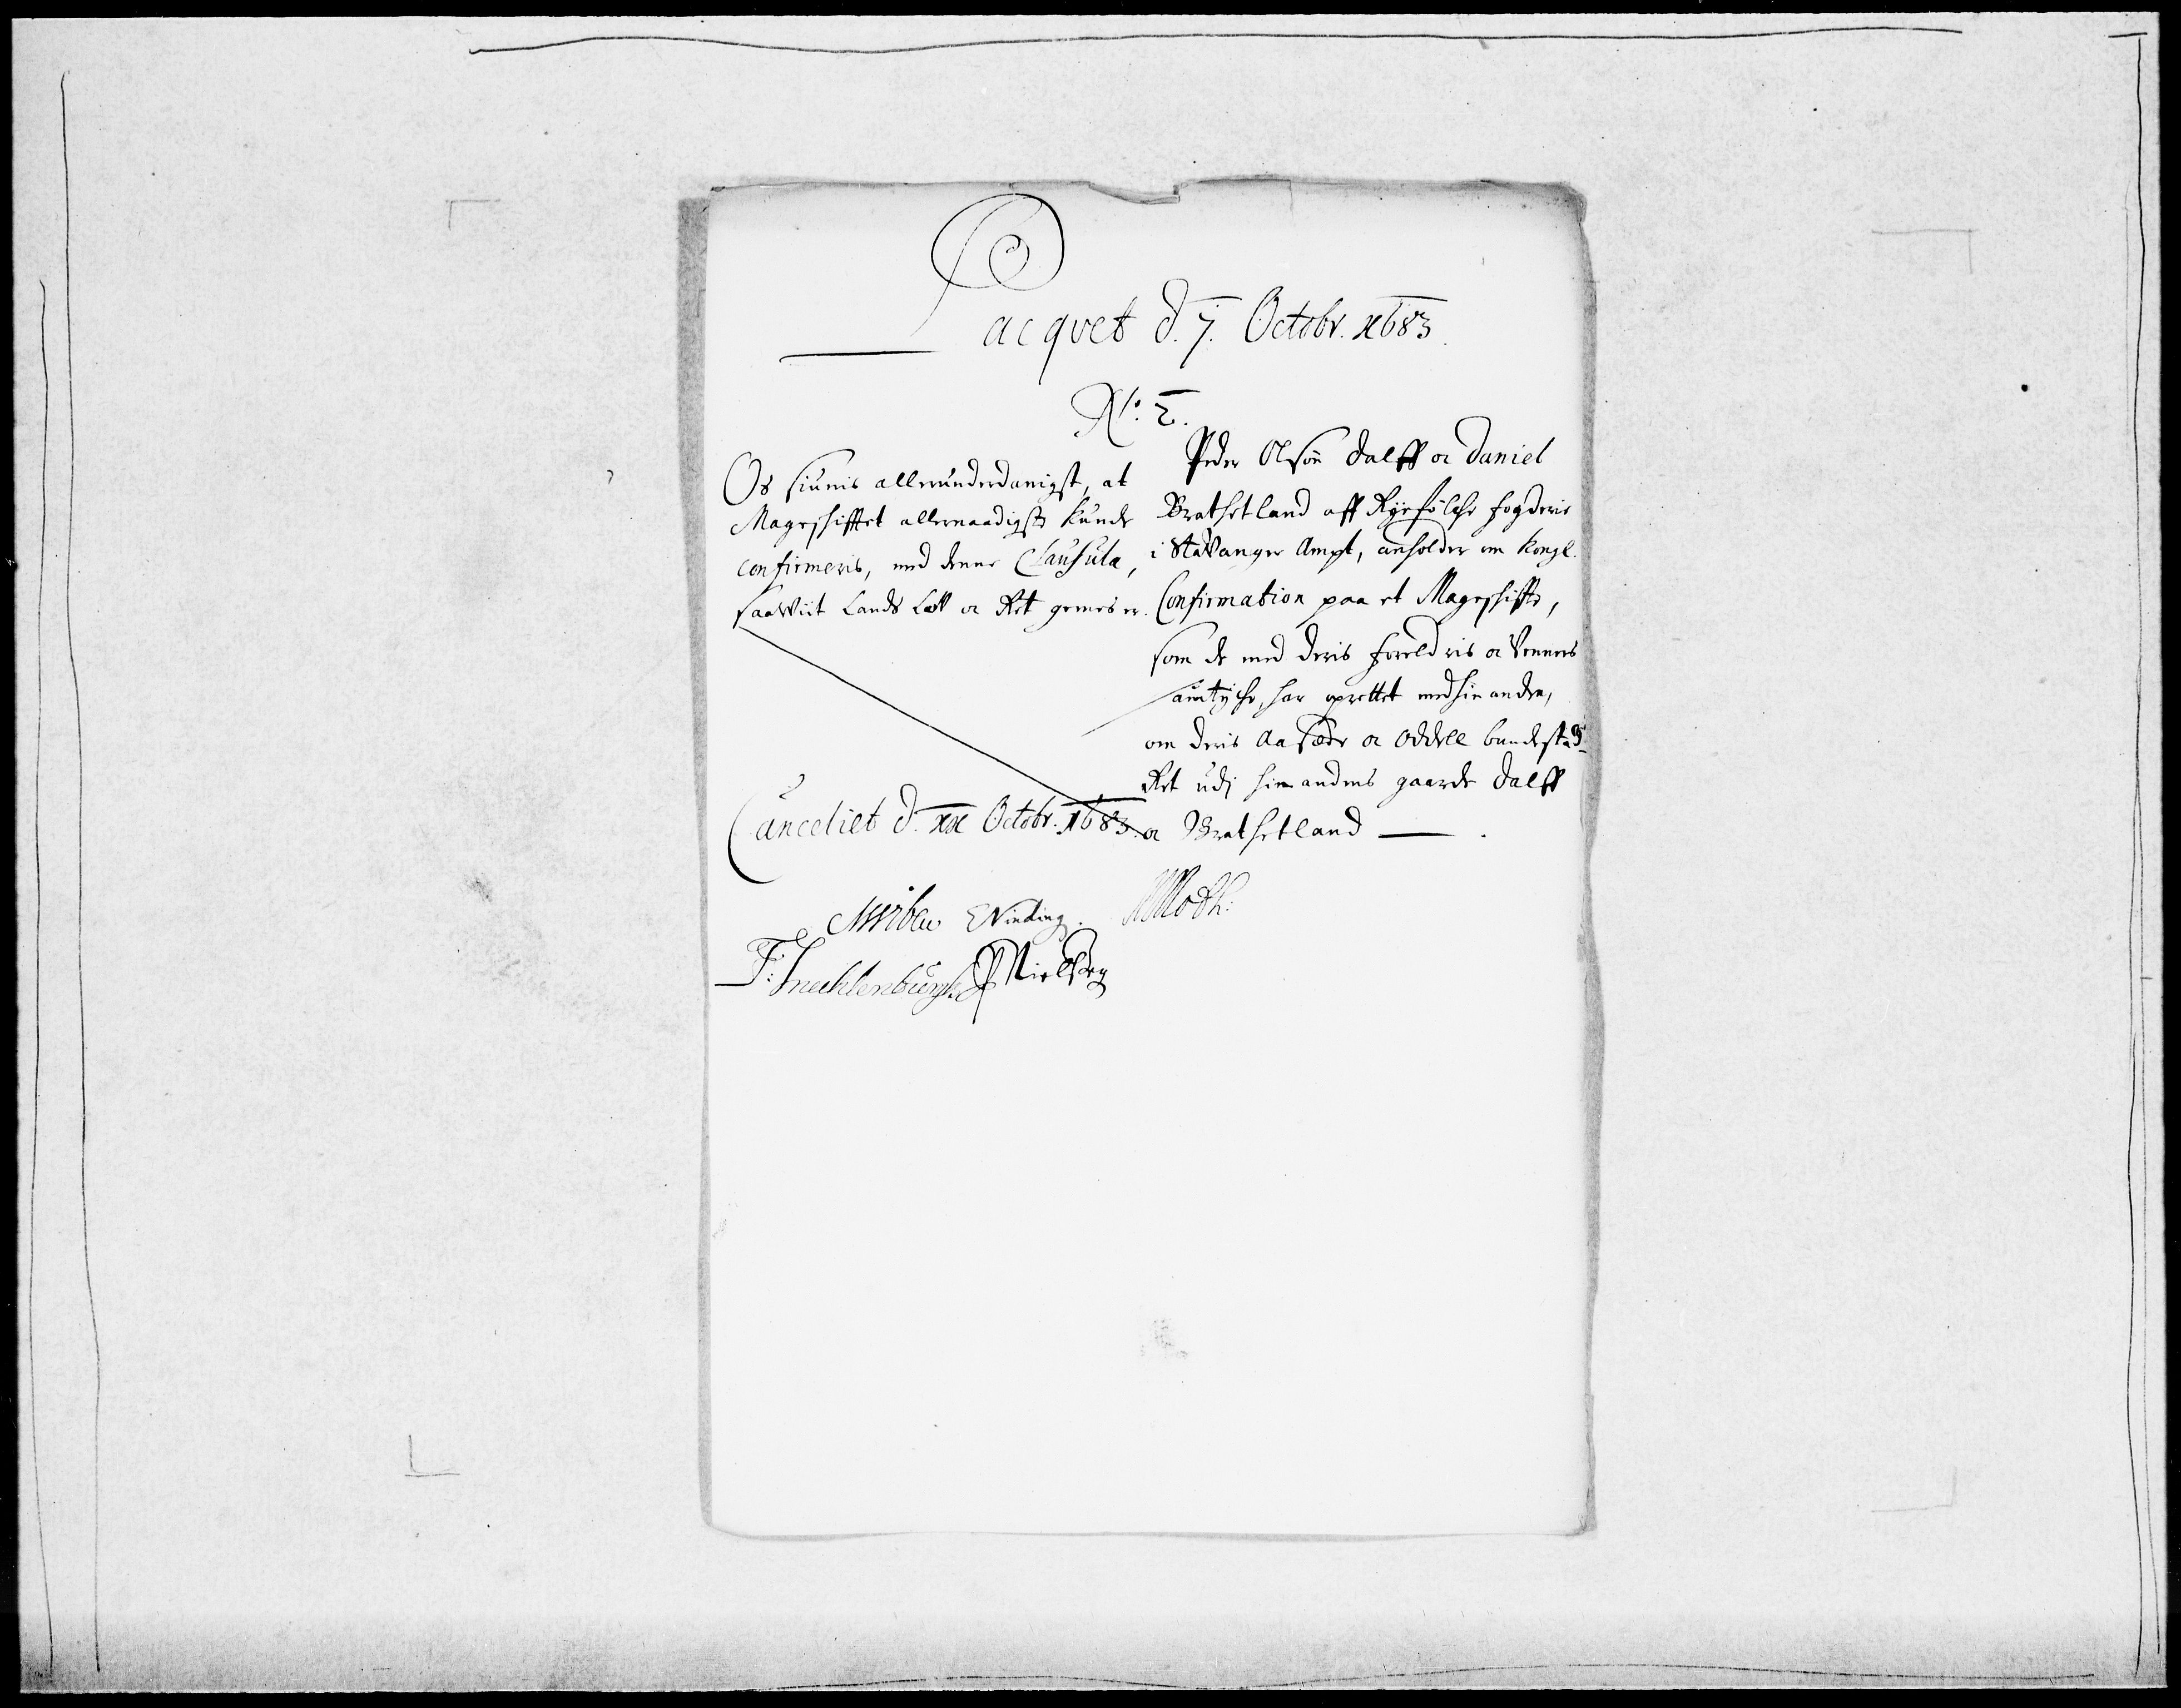 Pacqvet d. 7. Octobr. 1683.
No. 2.
Peder Olssøn Dalff oc Daniel
Brathetland aff Ryefölche fogderie
i Stavanger Ampt, anholder om Kongl.
Confirmation paa et Mageschiffte,
som de med deris foreldris oc Venners
samtÿche, har oprettet med hinanden,
om deris Aasæde oc Oddell bundestads
Ret udj hinandens gaarde Dalff
oc Brathetland
Os siunis allerunderdanigst, at
Mageschifftet allernaadigst kunde
confirmeris, med denne Clausula,
saaviit Lands Lov oc Ret gemes er.
Canceliet d. xx Octobr. 1683.
Wibe Vinding. MMoth:
F: Mecklenburg PNielssøn